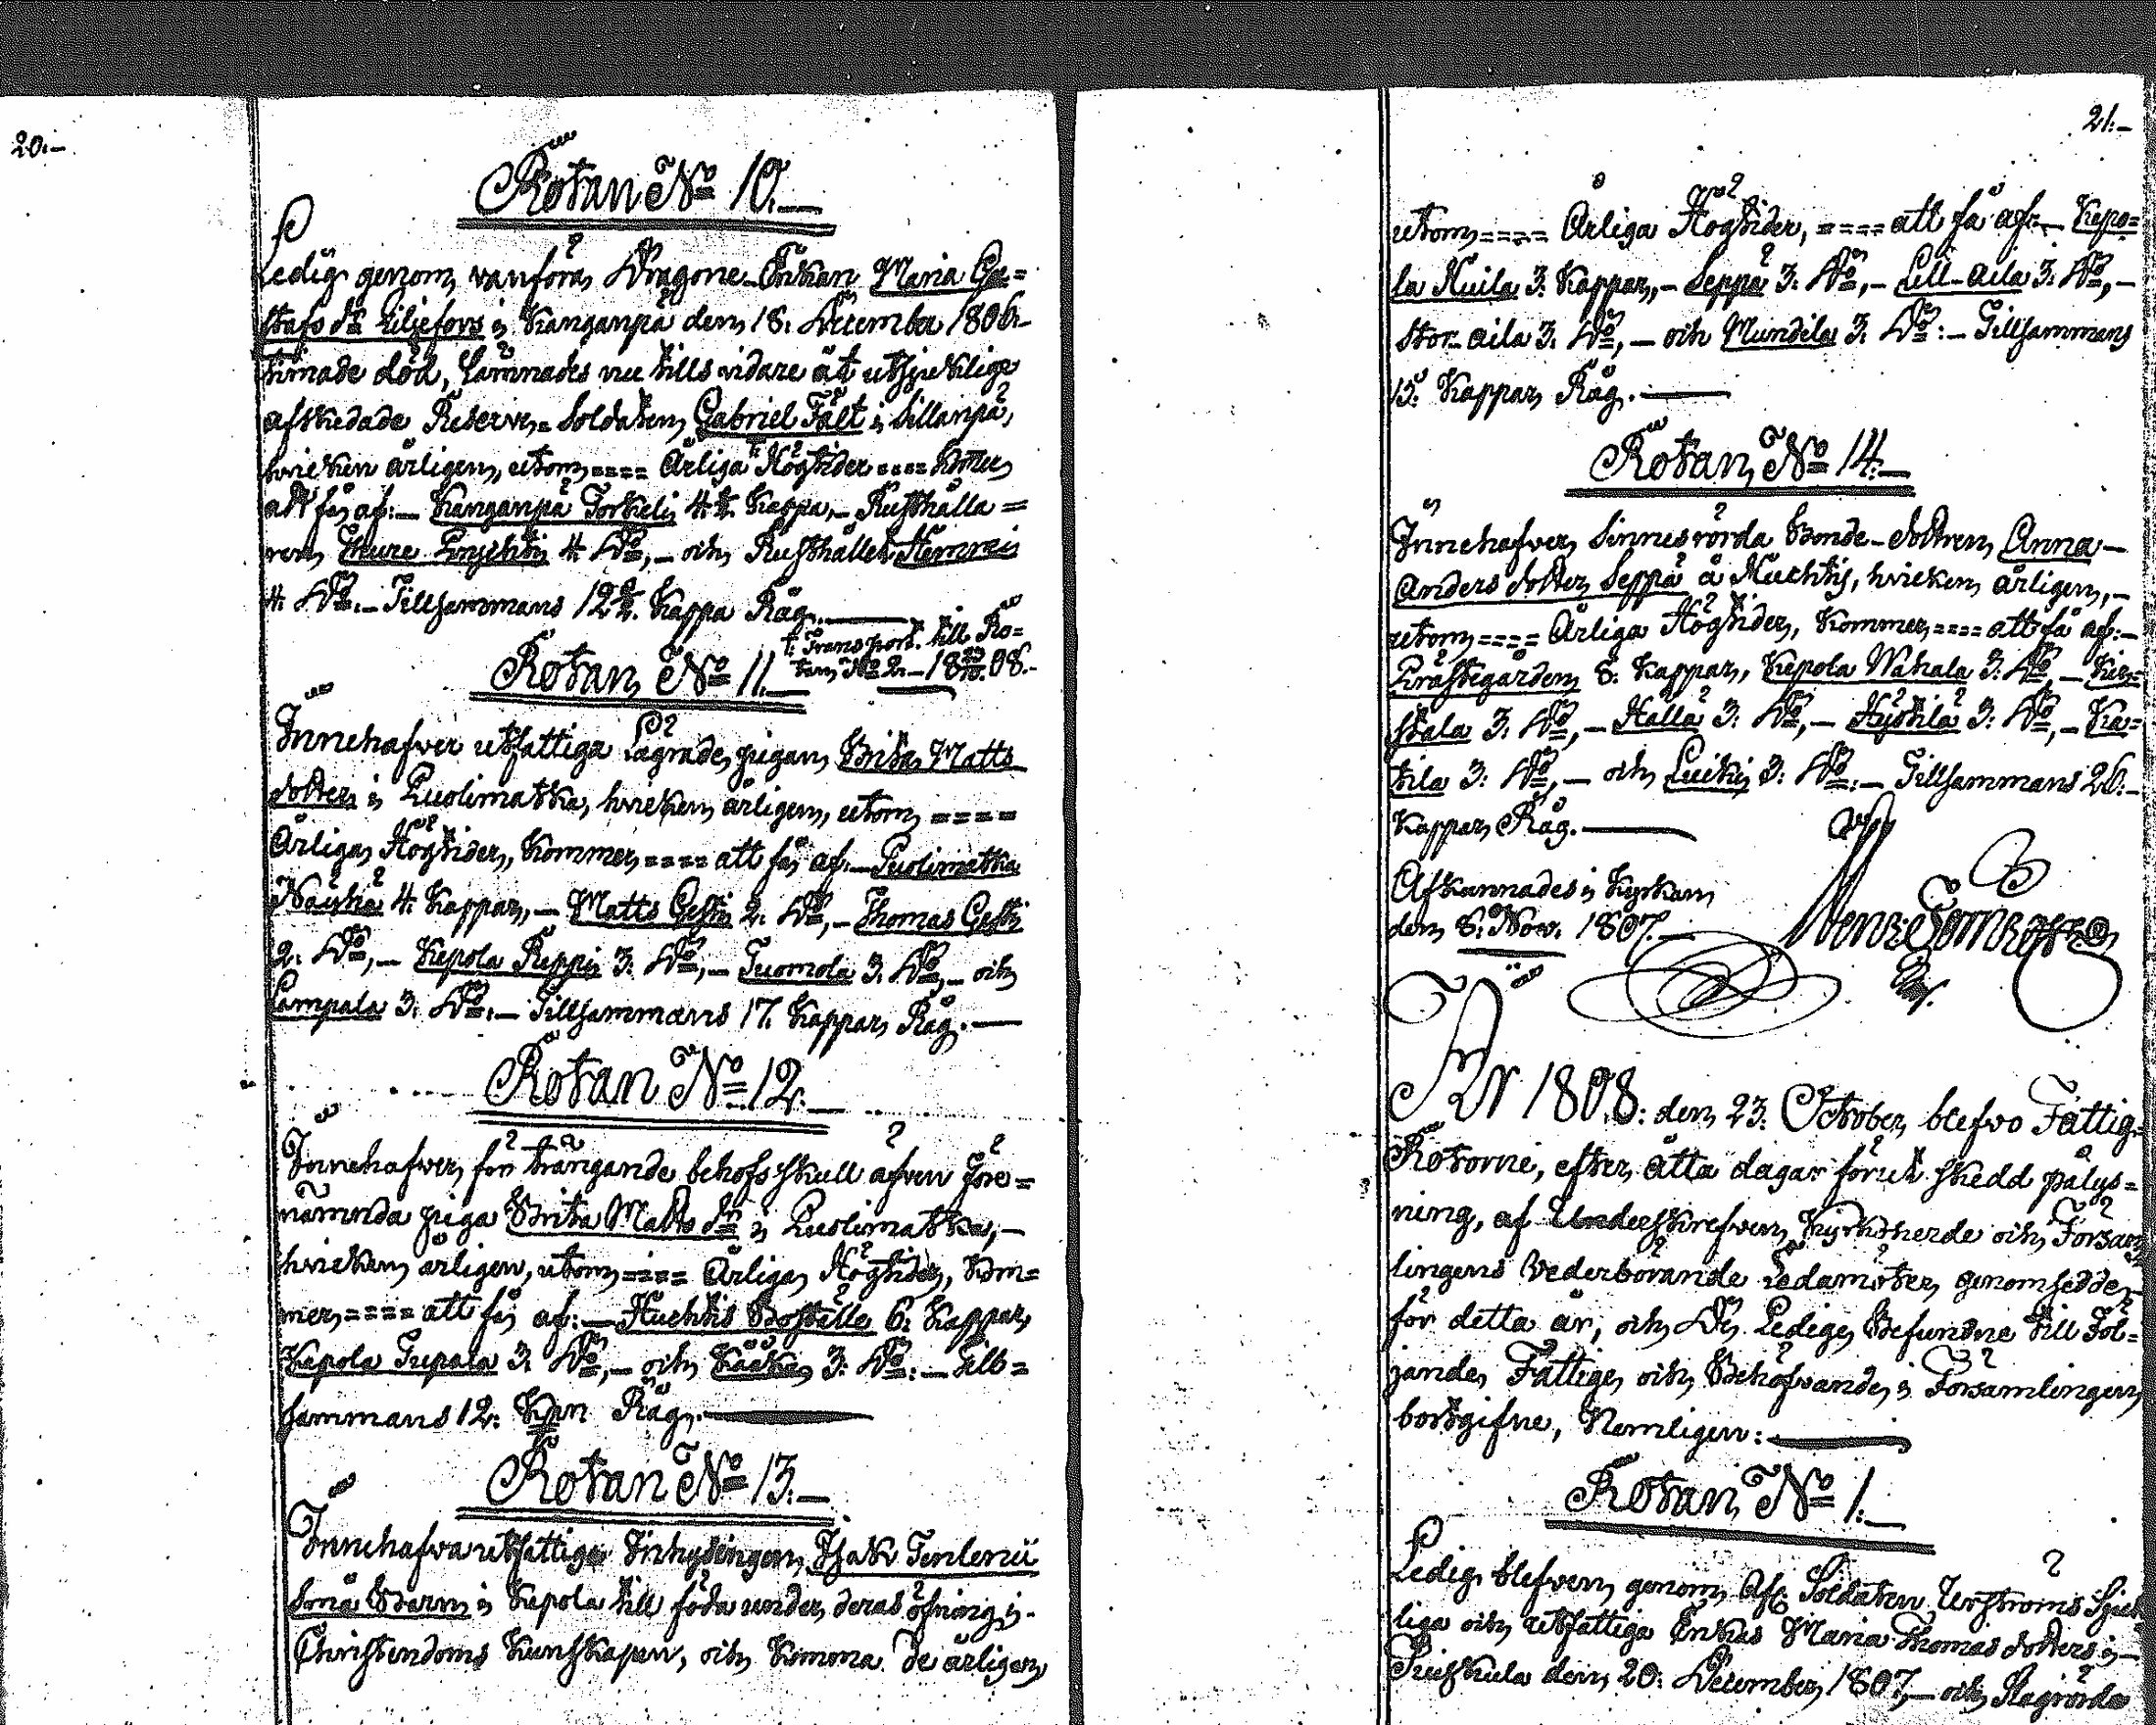 20.-
Rotan No 10.
Ledig genom vanföra Dragone-Enkan Maria Gu=
stafs dr Liljefors i Kanganpä den 18. December 1806.
timade död, lämnades nu tills vidare åt utsjuklige
afskedade Reserve=Soldaten Gabriel Fält i Sillanpä,
hvicken årligen, utom ==== Årliga Högtider ==== kommer
att få af:- Kanganpä Torkeli 4 1/2 Kappa,- Rusthålla=
ren Thure 4 Do,- och Rusthållet Heinrici
4. Do.- Tillsammans 12 1/2. Kappa Råg.
t. Transport. till Ro=
tan No 2.- 18 23/10 08.-
Rotan No 11.
Innehafver utfattiga Lägrade pigan Brita Matts
dotter i Puolimatka, hvicken årligen, utom ====
Årliga Högtider, kommer ==== att få af.- Puolimatka
Näuhä 4. Kappar,- Matts Gesti 2. Do,- Thomas Gesti
2. Do,- Kepola Reppi 3. Do,- Tuomola 3. Do,- och
Lampala 3. Do.- Tillsammans 17. Kappar Råg.
Rotan No 12.
Innehafver för trängande behofs skull äfven före=
nämnda piga Brita Matts dr i Puolimatka,-
hvicken årligen, utom ==== Årliga Högtider, kom=
mer ==== att få af:- Huchtis Boställe 6. Kappar,
Kepola Tupala 3. Do,- och Kååka 3. Do:- Till=
sammans 12. Kpr Råg.
Rotan No 13.
Innehafva utfattige Inhysingen Isak Tenlenii
Små Barn i Kepola till föda under deras öfning i
Christendoms Kunskapen, och komma de årligen
21.-
utom ==== Årliga Högtider, ==== att få af:- Kepo=
la Kuila 3. Kappar,- Seppä 3. Do,- Lill-aila 3. Do,-
Stor-aila 3. Do,- och Mundila 3. Do:- Tillsammans
15. Kappar Råg.
Rotan No 14.
Innehafver Sinnesrörda Bonde-dottren Anna
Anders dotter Seppä å Huchtis, hvicken årligen,-
utom ==== Årliga Högtider, kommer ==== att få af:-
Prästegården 8. Kappar, Kepola Wähala 3. Do,- Kir=
stala 3. Do,- Hallä 3. Do,- Hyökilä 3. Do,- Ka=
tila 3. Do,- och Luiki 3. Do.- Tillsammans 26.
Kappar Råg.
Afkunnades i Kyrkan
den 8. Nov. 1807.
År 1808. den 23. October blefvo Fattig=
Rotorne, efter åtta dagar förut skedd pålys=
ning, af Underskrefven Kyrkoherde och Försam
lingens Vederbörande Ledamöter genomsedde
för detta år, och De Ledige Befundne till Föl=
jande Fattige och Behöfvande i Församlingen
bortgifne, Nemligen:
Rotan No 1.
Ledig blefven genom Afl. Soldaten Urströms Sjuk
liga och utfattiga Enkas Maria Thomas dotters i
den 20. December 1807,- och Slagrörda